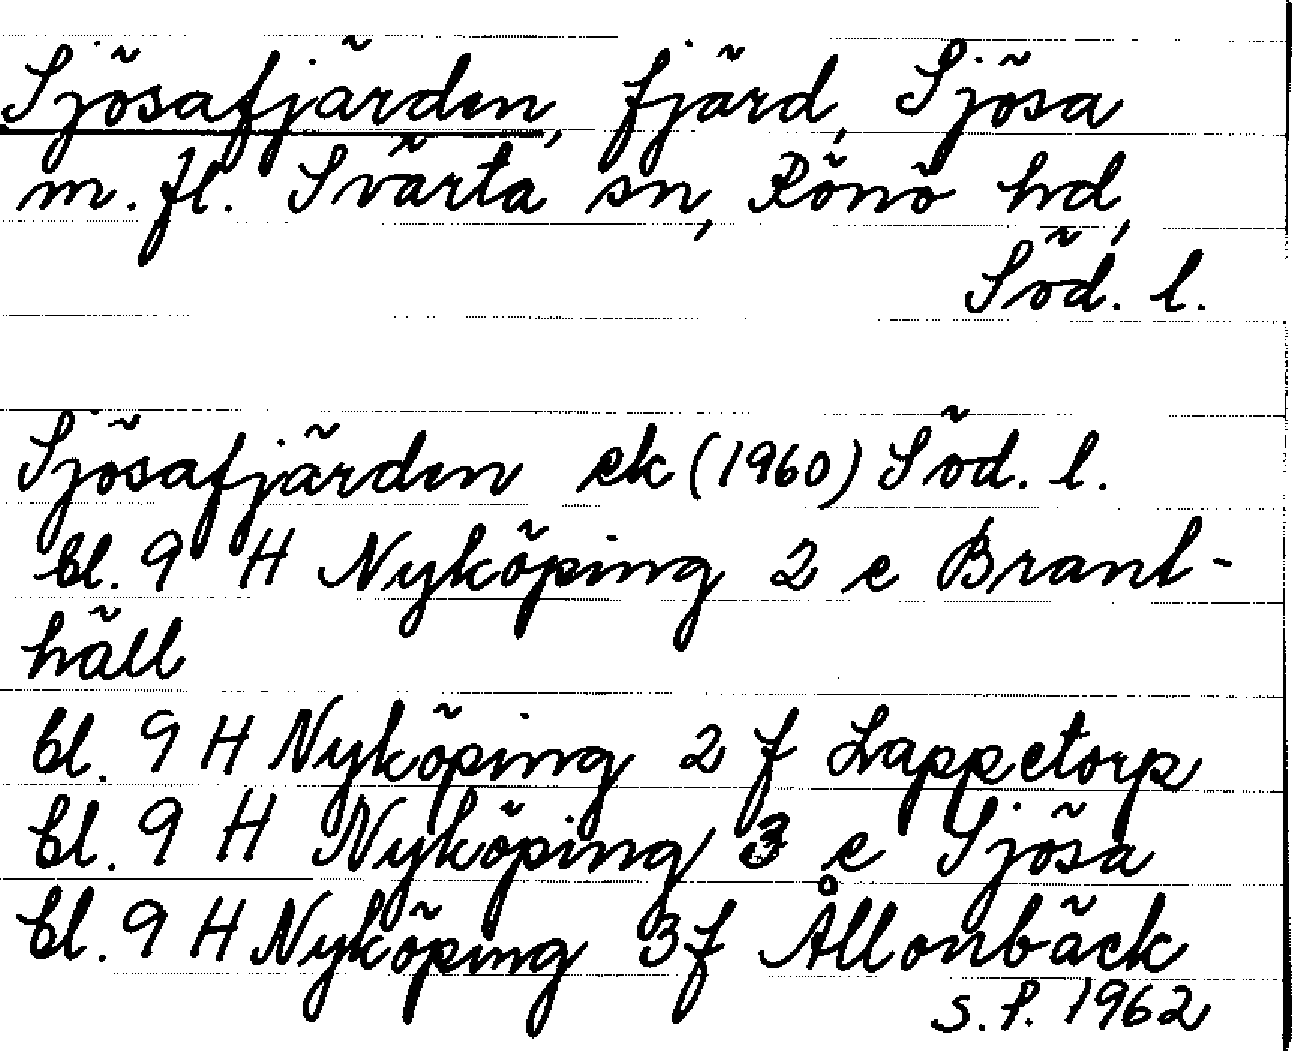 Sjösafjärden, fjärd, Sjösa
m. fl. Svärta sn, Rönö hd,
Söd. l.
Sjösafjärden ek (1960) Söd. l.
bl. 9 H Nyköping 2 e Brant-
häll
bl. 9 H Nyköping 2 f Lappetorp
bl. 9 H Nyköping 3 e Sjösa
bl. 9 H Nyköping 3 f Ållonbäck
S. P. 1962